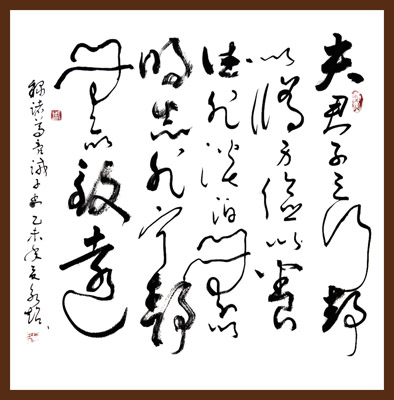 夫君子之行靜
以修身儉以養
德非淡泊無以
明志非寧靜
無以致遠
錄諸葛亮誡子書乙未